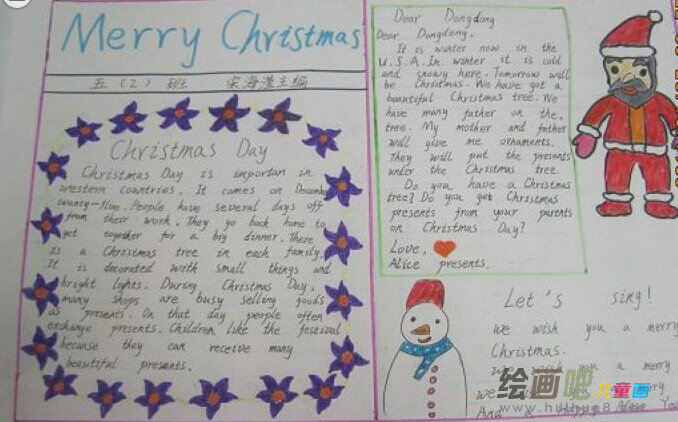 Merry Christmas
五（2）班 宋海滢主编
Christmas Day
Christmas Day is importan in
western countries. It comes on Decemb
twenty-five. People have several days off
from their work. They go back home to
get together for a big dinner. There
is a Christmas tree in each family.
It is decorated with small things and
bright lights. During Christmas Day,
many shops are busy selling goods
as presents. On that day people often
exchange presents. Children like the festival
because they can receive many
beautiful presents.
Dear Dongdong
Dear Dongdong,
It is winter now in the
U.S.A. In winter it is cold
and snowy here. Tomorrow will
be Christmas. We have got a
beautiful Christmas tree. We
have many father on the
tree. My mother and father
will give me ornaments.
They will put the presents
under the Christmas tree.
Do you have a Christmas
tree? Do you get Christmas
presents from your parents
on Christmas Day?
Love,
Alice presents.
Let's sing!
We wish you a merry
Christmas.
We wish you a merry
We
And a Happy New Yea
绘画吧 儿童画